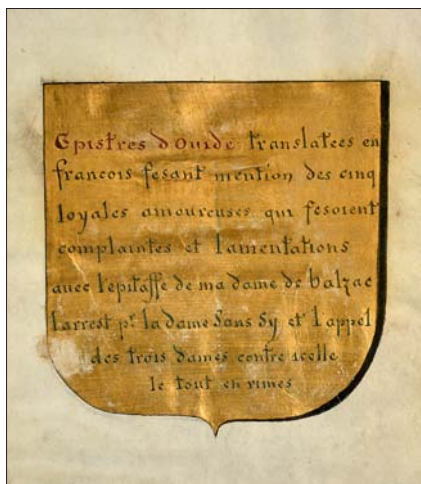 Epistres dOuide translatees en
francois fesant mention des cinq
loyales amoureuses qui fesoient
complaintes et lamentations
auec lepitaffe de ma dame de balzac
larrest pr la dame sans sy et lappel
des trois dames contre icelle
le tout en rimes